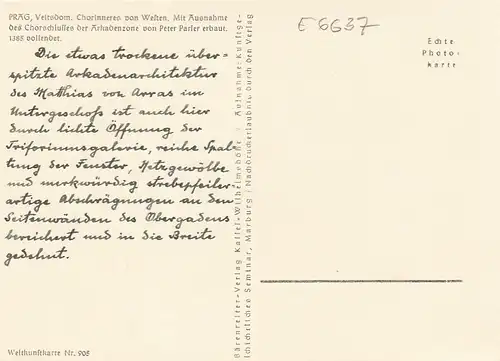 PRAG, Veitsdom. Chorinneres von Westen. Mit Ausnahme
des Chorschlusses der Arkadenzone von Peter Parler erbaut.
1385 vollendet.
Die etwas trockene über-
spitzte Arkadenarchitektur
des Matthias von Arras im
Untergeschoß ist auch hier
durch lichte Öffnung der
Triforiumsgalerie, reiche Spal-
tung der Fenster, Netzgewölbe
und merkwürdig strebepfeiler-
artige Abschrägungen an den
Seitenwänden des Obergadens
bereichert und in die Breite
gedehnt.
Weltkunstkarte Nr. 905
Bärenreiter-Verlag Kassel-Wilhelmshöhe · Aufnahme: Kunstge-
schichtliches Seminar, Marburg / Nachdruckerlaubnis durch den Verlag
E6637
Echte
Photo-
karte